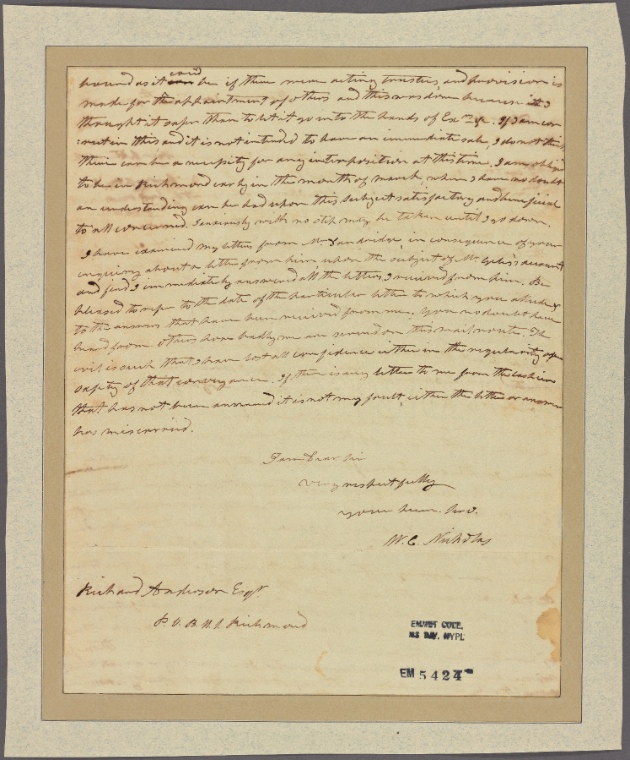 bound as it could be if there were acting trustees, and provision is
made for the appointment of others and this was done because it is
thought it safer than to let it go into the hands of Ex. If I am cor
rect in this and it is not intended to have an immediate sale, I do not think
there can be a necessity for any interposition at this time, I am obliged
to be in Richmond early in the month of march, when I have no doubt
an understanding can be had upon this subject satisfactory and beneficial
to all concerned. I anxiously wish no step may be taken until I go down.
I have examined my letters from Mr Dandridge, in consequence of your
enquiry about a letter from him upon the subject of Mr account
and find I immediately answered all the letters I received from him. Be
pleased to refer to the date of the particular letter to which you allude &
to the answer that have been received from me. You no doubt have
heard from others how badly we are served on this mail route. The
evil is such that I have lost all confidence either in the regularity or
safety of that conveyance. If there is any letter to me from the cashier
that has not been answered it is not my fault, either the letter or answer
has miscarried.
I am Dear Sir
very respectfully
your hum. Serv.
W. C. Nicholas
Richard Anderson Esqr.
P. O. B. U. S. Richmond
EMMET COLL.
MS DIV. NYPL
EM 5424